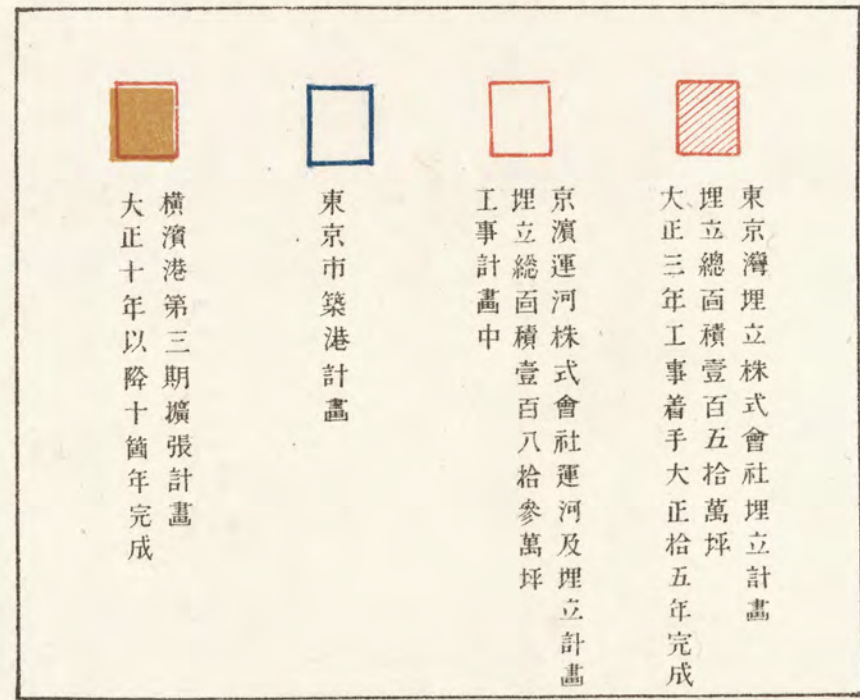 東京灣埋立株式會社埋立計畫
埋立總面積壹百五拾萬坪
大正三年工事着手大正拾五年完成
京濱運河株式會社運河及埋立計畫
埋立総面積壹百八拾參萬坪
工事計畫中
東京市築港計畫
横濱港第三期擴張計畫
大正十年以降十箇年完成